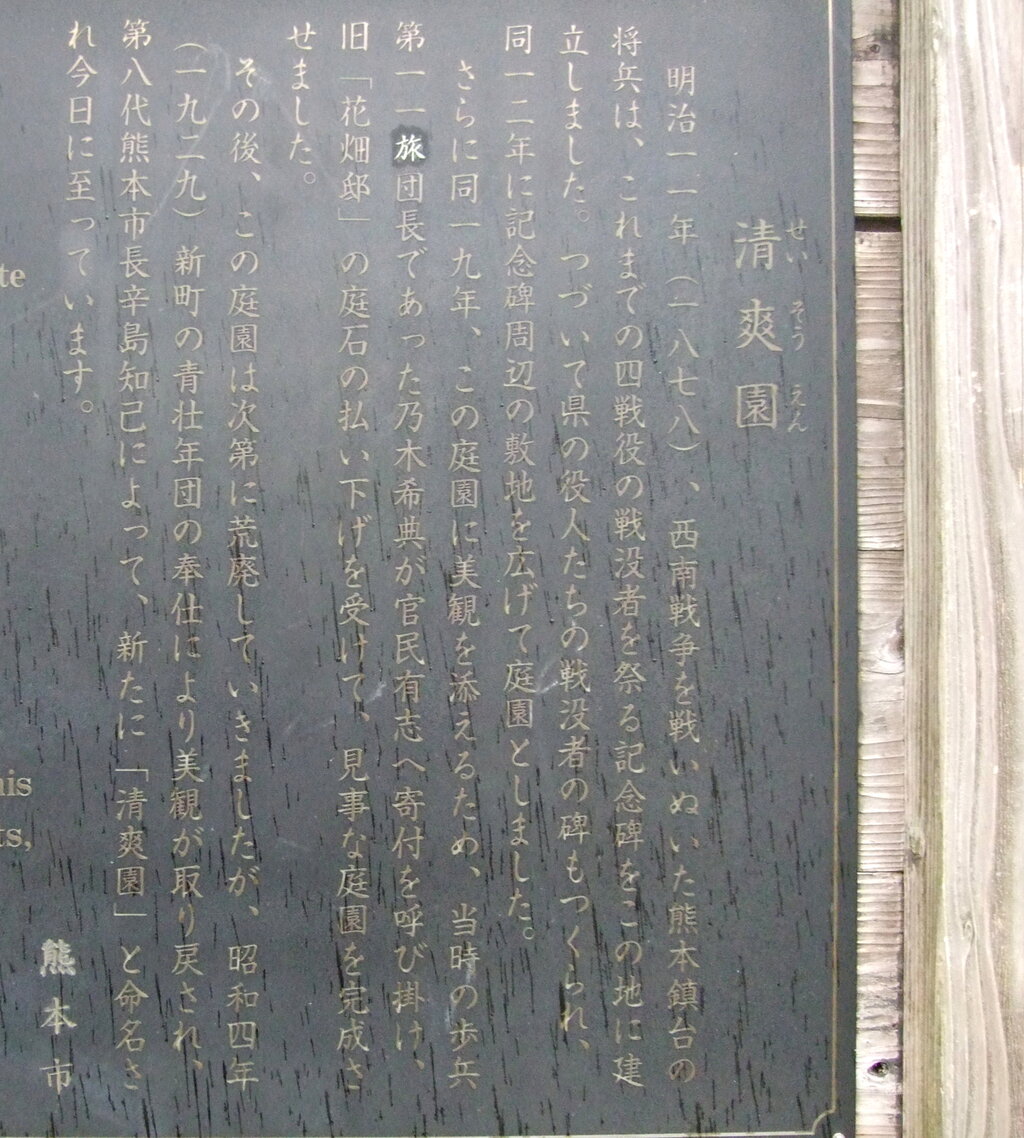 清爽園
せいそうえん
明治一一年（一八七八）、西南戦争を戦いぬいた熊本鎮台の
将兵は、これまでの四戦役の戦没者を祭る記念碑をこの地に建
立しました。つづいて県の役人たちの戦没者の碑もつくられ、
同一二年に記念碑周辺の敷地を広げて庭園としました。
さらに同一九年、この庭園に美観を添えるため、当時の歩兵
第一一旅団長であった乃木希典が官民有志へ寄付を呼び掛け、
旧「花畑邸」の庭石の払い下げを受けて、見事な庭園を完成さ
せました。
その後、この庭園は次第に荒廃していきましたが、昭和四年
（一九二九）新町の青壮年団の奉仕により美観が取り戻され、
第八代熊本市長辛島知己によって、新たに「清爽園」と命名さ
れ今日に至っています。
熊本市
te
his
ts,